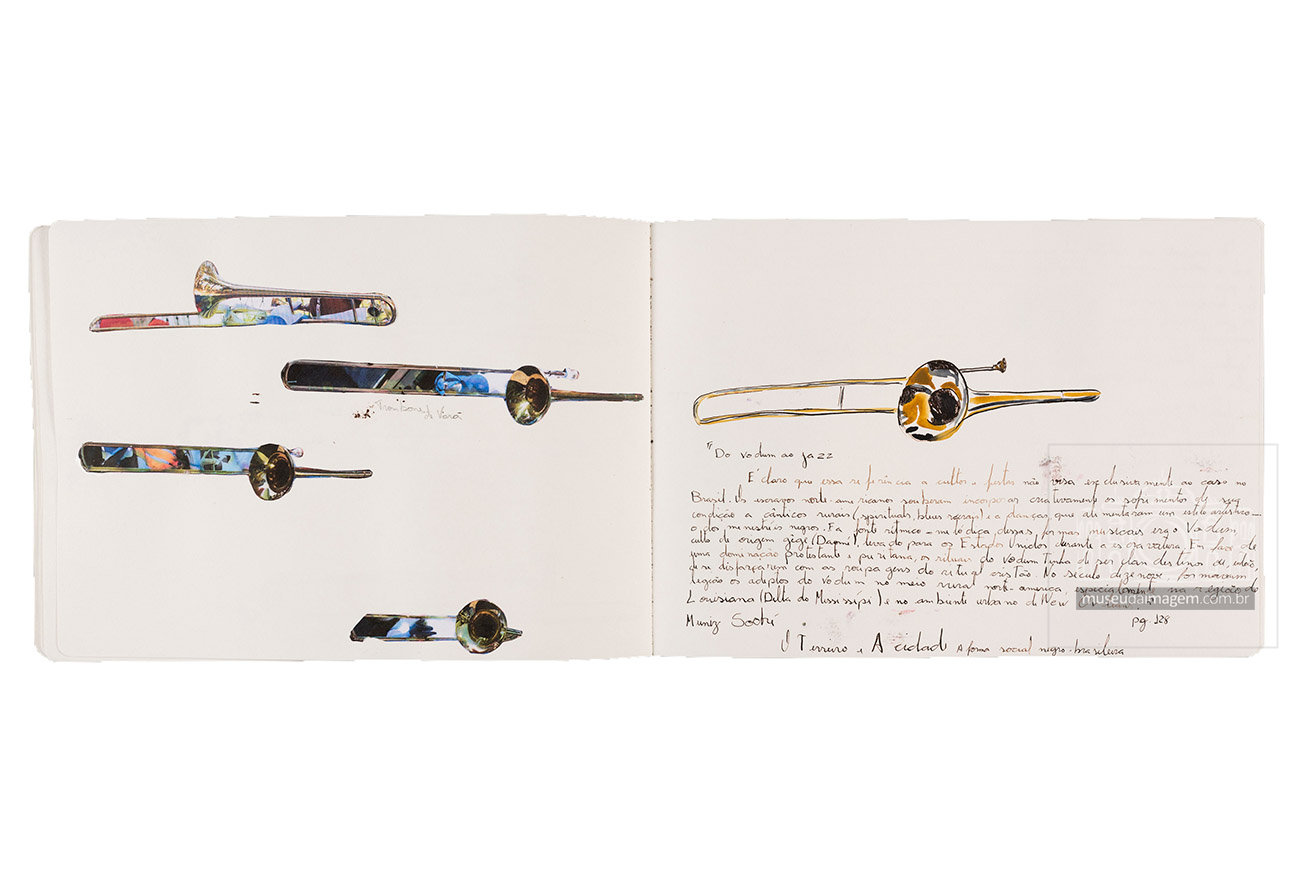 Trombone de Vara
"Do vodum ao jazz
É claro que essa referência a cultos e festas não visa exclusivamente ao caso no
Brasil. Os escravos norte-americanos souberam incorporar criativamente os sofrimentos de sua
condição a cânticos rurais (spirituals, blues rurais) e a danças que alimentaram um estilo artístico_
o dos menestréis negros. Ea fonte rítmico-melódica dessas formas musicais era o Vodum,
culto de origem gêge (Daomé), levado para os Estados Unidos durante a escravatura. Em face de
uma dominação protestante e puritana, os rituais do vodum tinha de ser clandestinos ou, então,
se disfarçarem com as roupagens do ritual cristão. No século dezenove, formavam
legião os adeptos do vodum no meio rural norte-america, especialmente na região de
Louisiana (Delta do Mississípi) e no ambiente urbano de New
museudaimagem.com.br
Muniz Sodré
pg. 128
O Terreiro e A cidade A forma social negro-brasileira